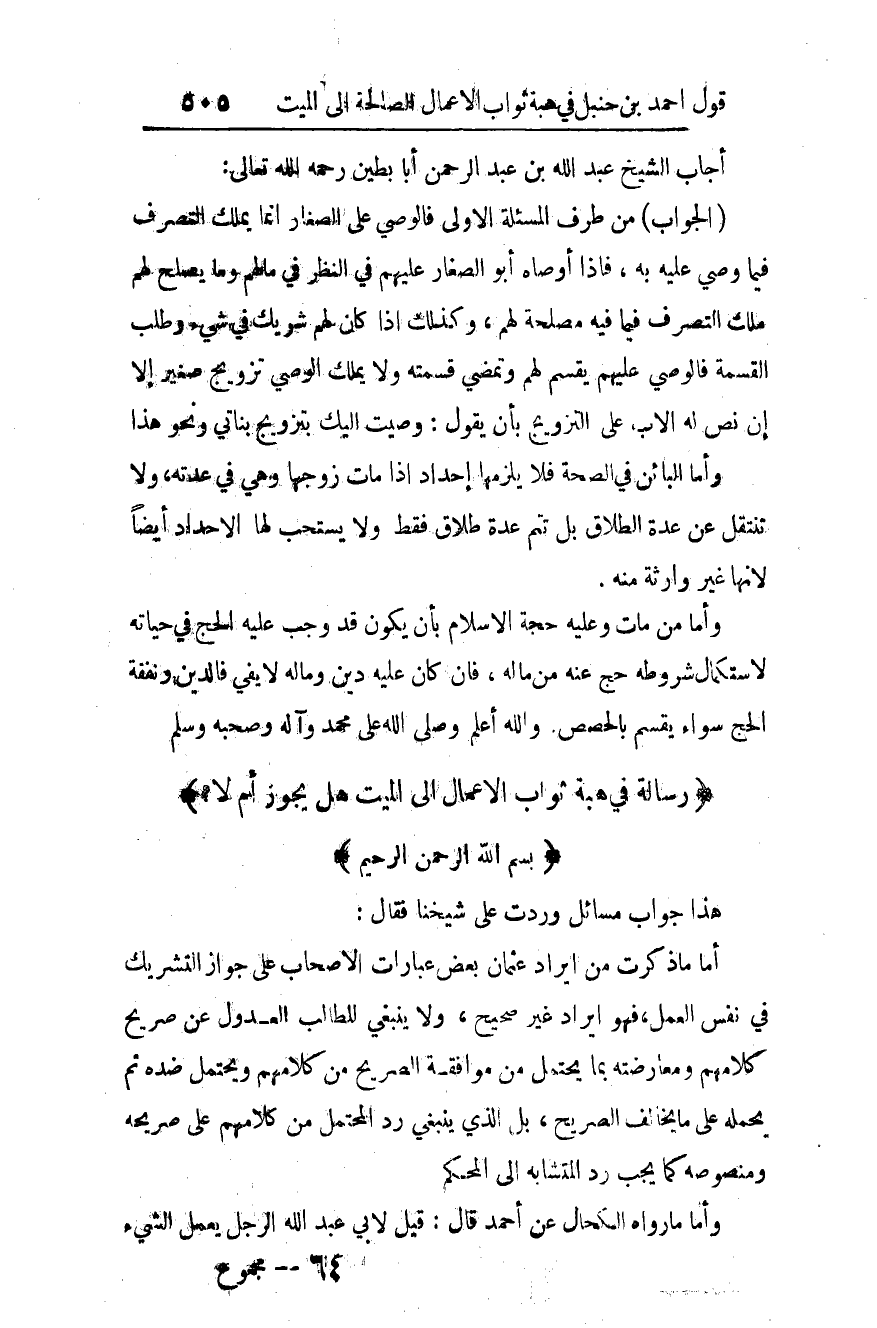 قول احمد بن حنبل في هبة ثواب الاعمال الصالحة الى الميت ٥٠٥
أجاب الشيخ عبد الله بن عبد الرحمن أبا بطين رحمه الله تعالى:
(الجواب) من طرف المسئلة الاولى فالوصي على الصغار انما يملك التصرف
فيما وصي عليه به ، فاذا أوصاه أبو الصغار عليهم في النظر في مالهم وما يصلح لهم
ملك التصرف فيما فيه مصلحة لهم ، وكذلك اذا كان لهم شريك في شيء وطلب
القسمة فالوصي عليهم يقسم لهم وتمضي قسمته ولا يملك الوصي تزويج صغير إلا
إن نص له الاب على التزويج بأن يقول : وصيت اليك بتزويج بناتي ونحو هذا
وأما البائن في الصحة فلا يلزمها إحداد اذا مات زوجها وهي في عدته، ولا
تنتقل عن عدة الطلاق بل تتم عدة طلاق فقط ولا يستحب لها الاحداد أيضاً
لانها غير وارثة منه .
وأما من مات وعليه حجة الاسلام بأن يكون قد وجب عليه الحج في حياته
لاستكمال شروطه حج عنه من ماله ، فان كان عليه دين وماله لا يفي فالدين ونفقة
الحج سواء يقسم بالحصص. والله أعلم وصلى الله على محمد وآله وصحبه وسلم
﴿ رسالة في هبة ثواب الاعمال الى الميت هل يجوز أم لا؟ ﴾
﴿ بسم الله الرحمن الرحيم ﴾
هذا جواب مسائل وردت على شيخنا فقال :
أما ماذكرت من ايراد عثمان بعض عبارات الاصحاب على جواز التشريك
في نفس العمل، فهو ايراد غير صحيح ، ولا ينبغي للطالب العـدول عن صريح
كلامهم ومعارضته بما يحتمل من موافقـة الصريح من كلامهم ويحتمل ضده ثم
يحمله على مايخالف الصريح ، بل الذي ينبغي رد المحتمل من كلامهم على صريحه
ومنصوصه كما يجب رد المتشابه الى المحكم
وأما مارواه الكحال عن أحمد قال : قيل لابي عبد الله الرجل يعمل الشيء
٦٤ -- مجموع